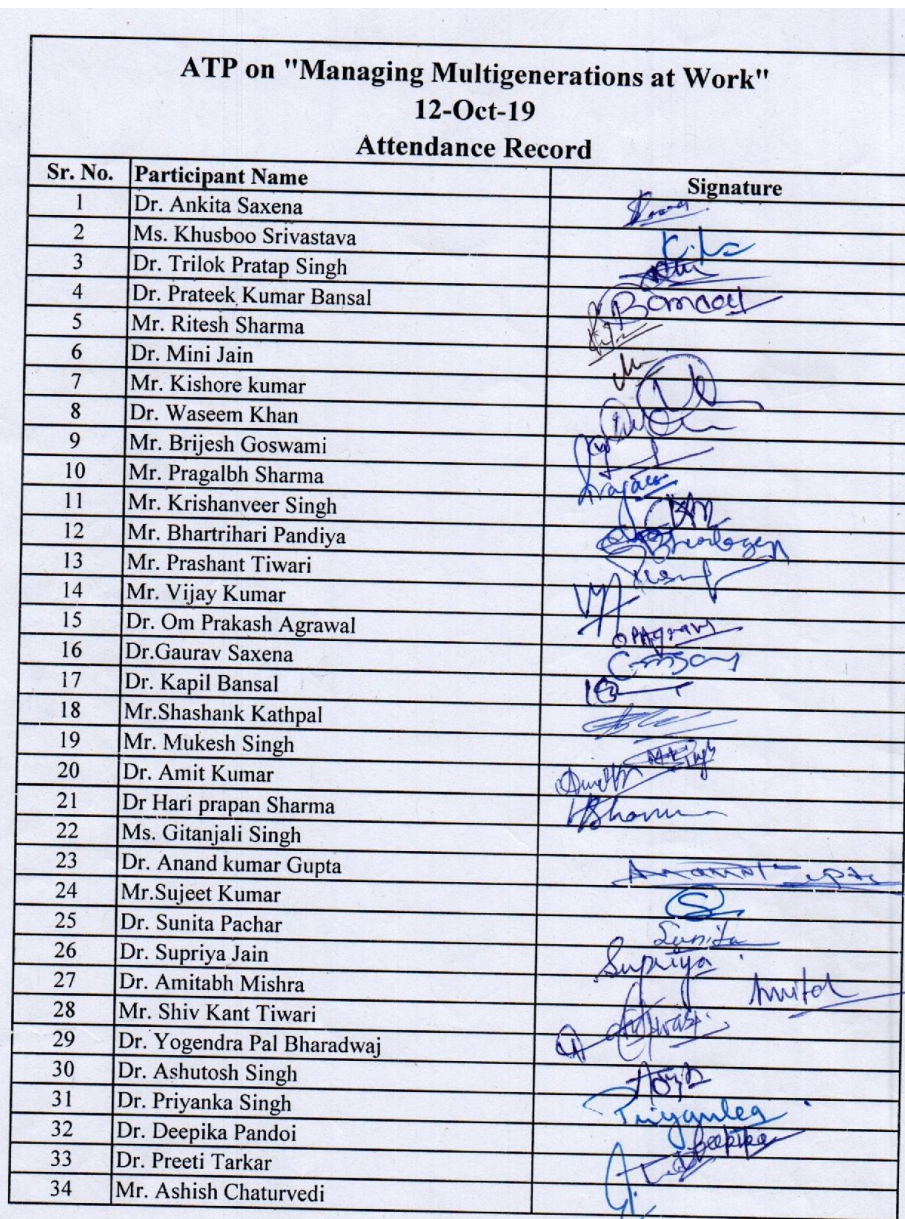 ATP on "Managing Multigenerations at Work"
12-Oct-19
Attendance Record
Sr. No. Participant Name Signature
1 Dr. Ankita Saxena
2 Ms. Khusboo Srivastava
3 Dr. Trilok Pratap Singh
4 Dr. Prateek Kumar Bansal
5 Mr. Ritesh Sharma
6 Dr. Mini Jain
7 Mr. Kishore kumar
8 Dr. Waseem Khan
9 Mr. Brijesh Goswami
10 Mr. Pragalbh Sharma
11 Mr. Krishanveer Singh
12 Mr. Bhartrihari Pandiya
13 Mr. Prashant Tiwari
14 Mr. Vijay Kumar
15 Dr. Om Prakash Agrawal
16 Dr.Gaurav Saxena
17 Dr. Kapil Bansal
18 Mr.Shashank Kathpal
19 Mr. Mukesh Singh
20 Dr. Amit Kumar
21 Dr Hari prapan Sharma
22 Ms. Gitanjali Singh
23 Dr. Anand kumar Gupta
24 Mr.Sujeet Kumar
25 Dr. Sunita Pachar Sunita
26 Dr. Supriya Jain Supriya
27 Dr. Amitabh Mishra
28 Mr. Shiv Kant Tiwari
29 Dr. Yogendra Pal Bharadwaj
30 Dr. Ashutosh Singh
31 Dr. Priyanka Singh
32 Dr. Deepika Pandoi Deepika
33 Dr. Preeti Tarkar
34 Mr. Ashish Chaturvedi